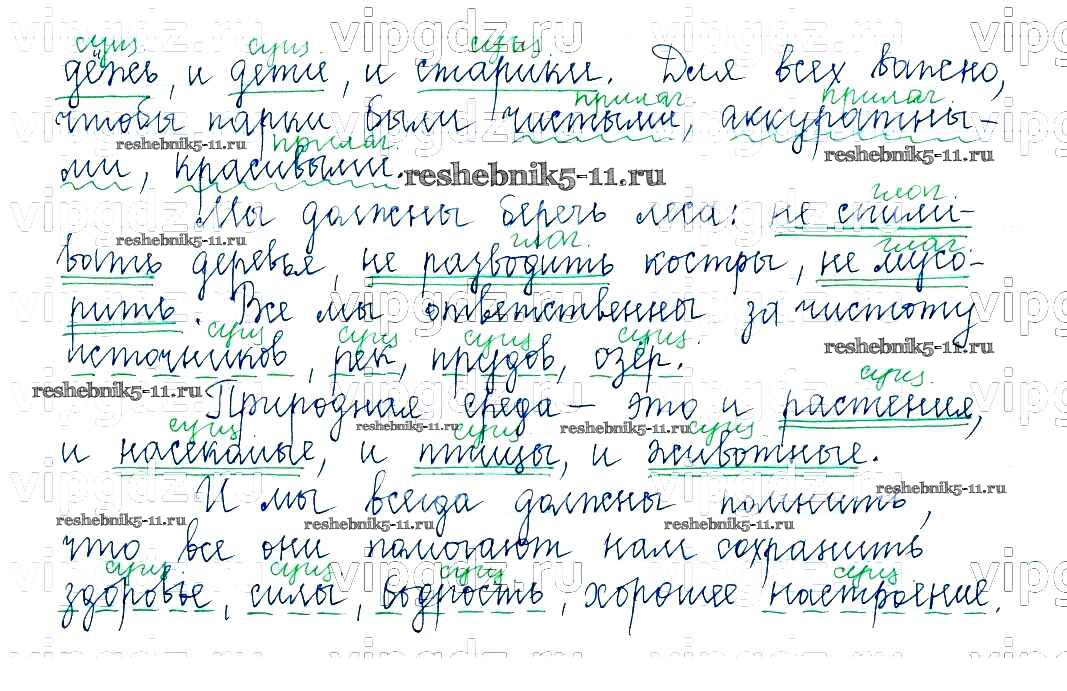 сущ. сущ. сущ.
дёжь, и дети, и старики. Для всех важно,
прилаг. прилаг.
чтобы парки были чистыми, аккуратны-
прилаг.
ми, красивыми.
глаг.
Мы должны беречь леса: не спили-
глаг. глаг.
вать деревья, не разводить костры, не мусо-
рить. Все мы ответственны за чистоту
сущ. сущ. сущ. сущ.
источников, рек, прудов, озёр.
сущ.
Природная среда – это и растения,
сущ. сущ. сущ.
и насекомые, и птицы, и животные.
И мы всегда должны помнить,
что все они помогают нам сохранить
сущ. сущ. сущ. сущ.
здоровье, силы, бодрость, хорошее настроение.
vipgdz.ru
reshebnik5-11.ru